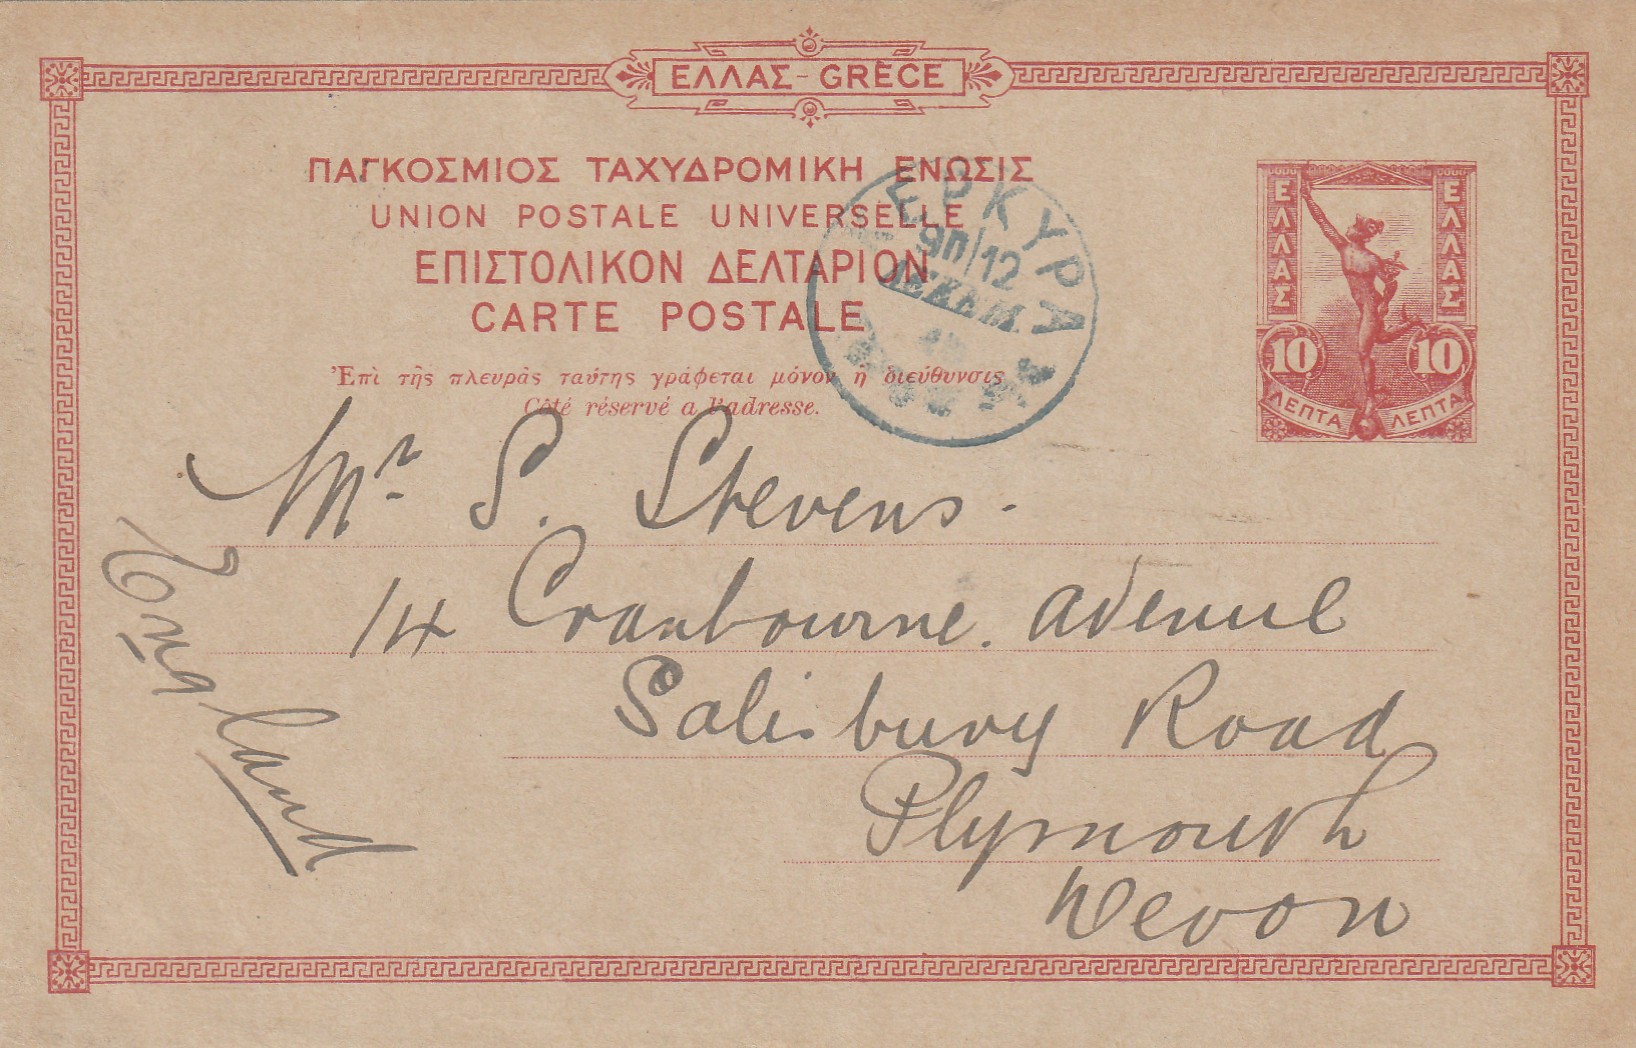 ΕΛΛΑΣ - GRÈCE
ΠΑΓΚΟΣΜΙΟΣ ΤΑΧΥΔΡΟΜΙΚΗ ΕΝΩΣΙΣ
UNION POSTALE UNIVERSELLE
ΕΠΙΣΤΟΛΙΚΟΝ ΔΕΛΤΑΡΙΟΝ
CARTE POSTALE
Ἐπὶ τῆς πλευρᾶς ταύτης γράφεται μόνον ἡ διεύθυνσις
Côté réservé a l'adresse.
ΕΛΛΑΣ
ΕΛΛΑΣ
10 10
ΛΕΠΤΑ ΛΕΠΤΑ
ΕΡΚΥΡΑ
12
ΔΕΚΕΜ.
Mr. S. Stevens.
14 Cranbourne. Avenue
Salisbury Road
Plymouth
Devon
England